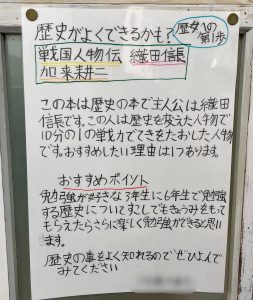 歴史がよくできるかも?
歴史への第1歩
戦国人物伝 織田信長
加来耕三
この本は歴史の本で主人公は織田
信長です。この人は歴史を変えた人物で
10分の1の戦力でてきをたおした人物
です。おすすめしたい理由は1つあります。
おすすめポイント
勉強が好きな3年生に6年生で勉強
する歴史についてすこしでもきょうみをもって
もらえたらさらに楽しく勉強ができると思い
ます。
歴史の事をよく知れるのでぜひよんで
みてください